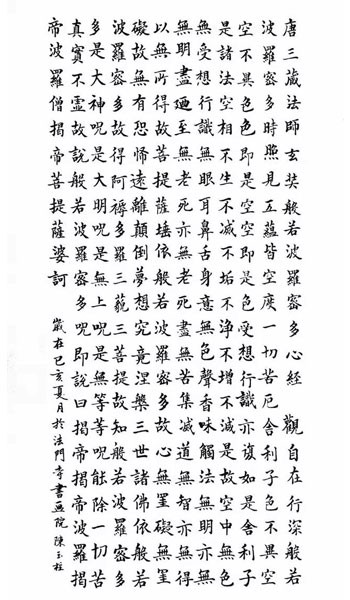 唐三藏法師玄奘般若波羅密多心經 觀自在行深般若
波羅密多時照見五蘊皆空度一切苦厄舍利子色不異空
空不異色色即是空空即是色受想行識亦復如是舍利子
是諸法空相不生不滅不垢不淨不增不減是故空中無色
無受想行識無眼耳鼻舌身意無色聲香味觸法無明亦無
無明盡廼至無老死亦無老死盡無苦集滅道無智亦無得
以無所得故菩提薩埵依般若波羅密多故心無罣礙無罣
礙故無有恐怖遠離顛倒夢想究竟涅槃三世諸佛依般若
波羅密多故得阿褥多羅三藐三菩提故知般若波羅密多
多是大神咒是大明咒是無上咒是無等等咒能除一切苦
真實不靈故說般若波羅密多咒即說曰揭帝揭帝波羅揭
帝波羅僧揭帝菩提薩婆訶
歲在己亥夏月於法門寺書画院 陳玉柱